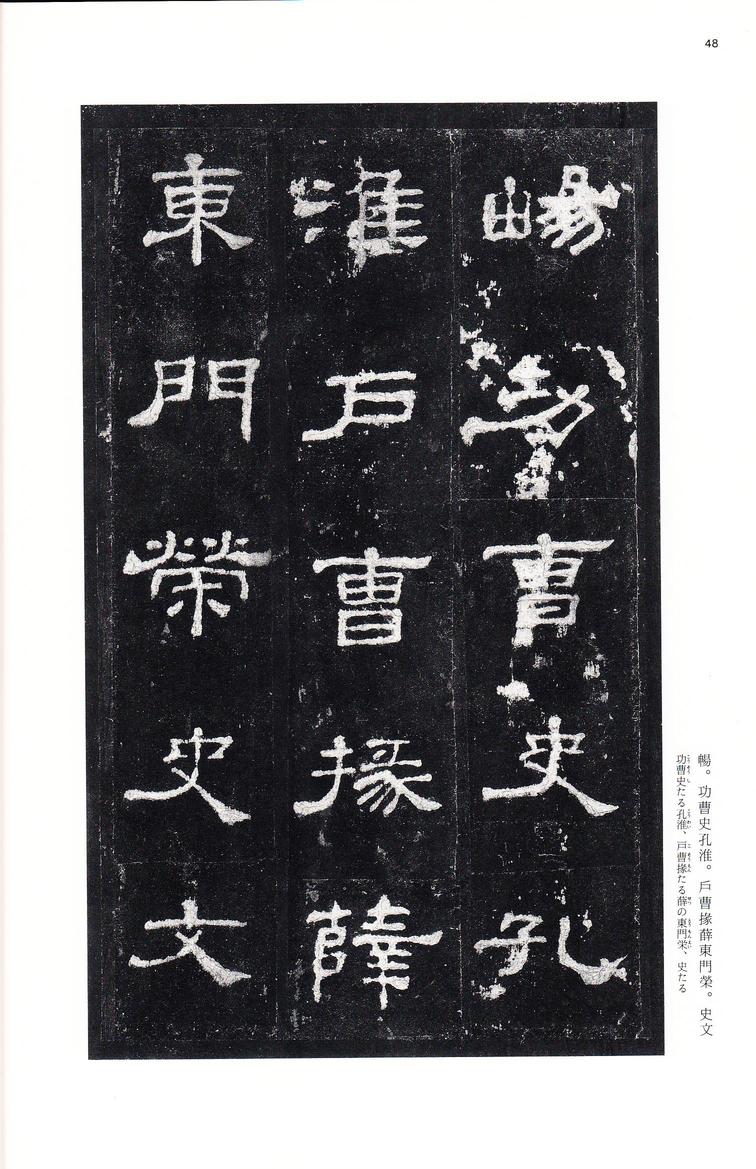 48
暢功曹史孔
淮戶曹掾薛
東門榮史文
暢。功曹史孔淮。戶曹掾薛東門榮。史文
功曹史たる孔淮、戸曹掾たる薛の東門栄、史たる